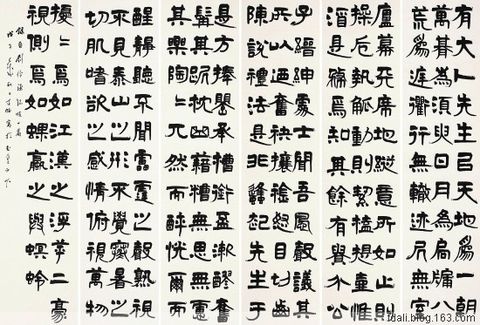 有大人先生㠯天地爲一朝
萬朞爲須臾日月爲扃牖八
荒爲庭衢行無轍迹居無室
廬幕天席地縱意所如止則
操卮執觚動則挈榼提壺惟
酒是務焉知其餘有貴介公
子縉紳處士聞吾風聲議其
所以乃奮袂攘襟怒目切齒
陳說禮法是非鋒起先生于
是方捧甖承槽銜杯漱醪奮
髯踑踞枕麴藉糟無思無慮
其樂陶〻兀然而醉恍爾而
醒靜聽不聞雷霆之聲熟視
不見泰山之形不覺寒暑之
切肌嗜欲之感情俯視萬物
擾〻焉如江漢之浮萍二豪
視側焉如蜾蠃之與螟蛉
錄自劉伶酒德頌一篇
rdali.blog.163.com